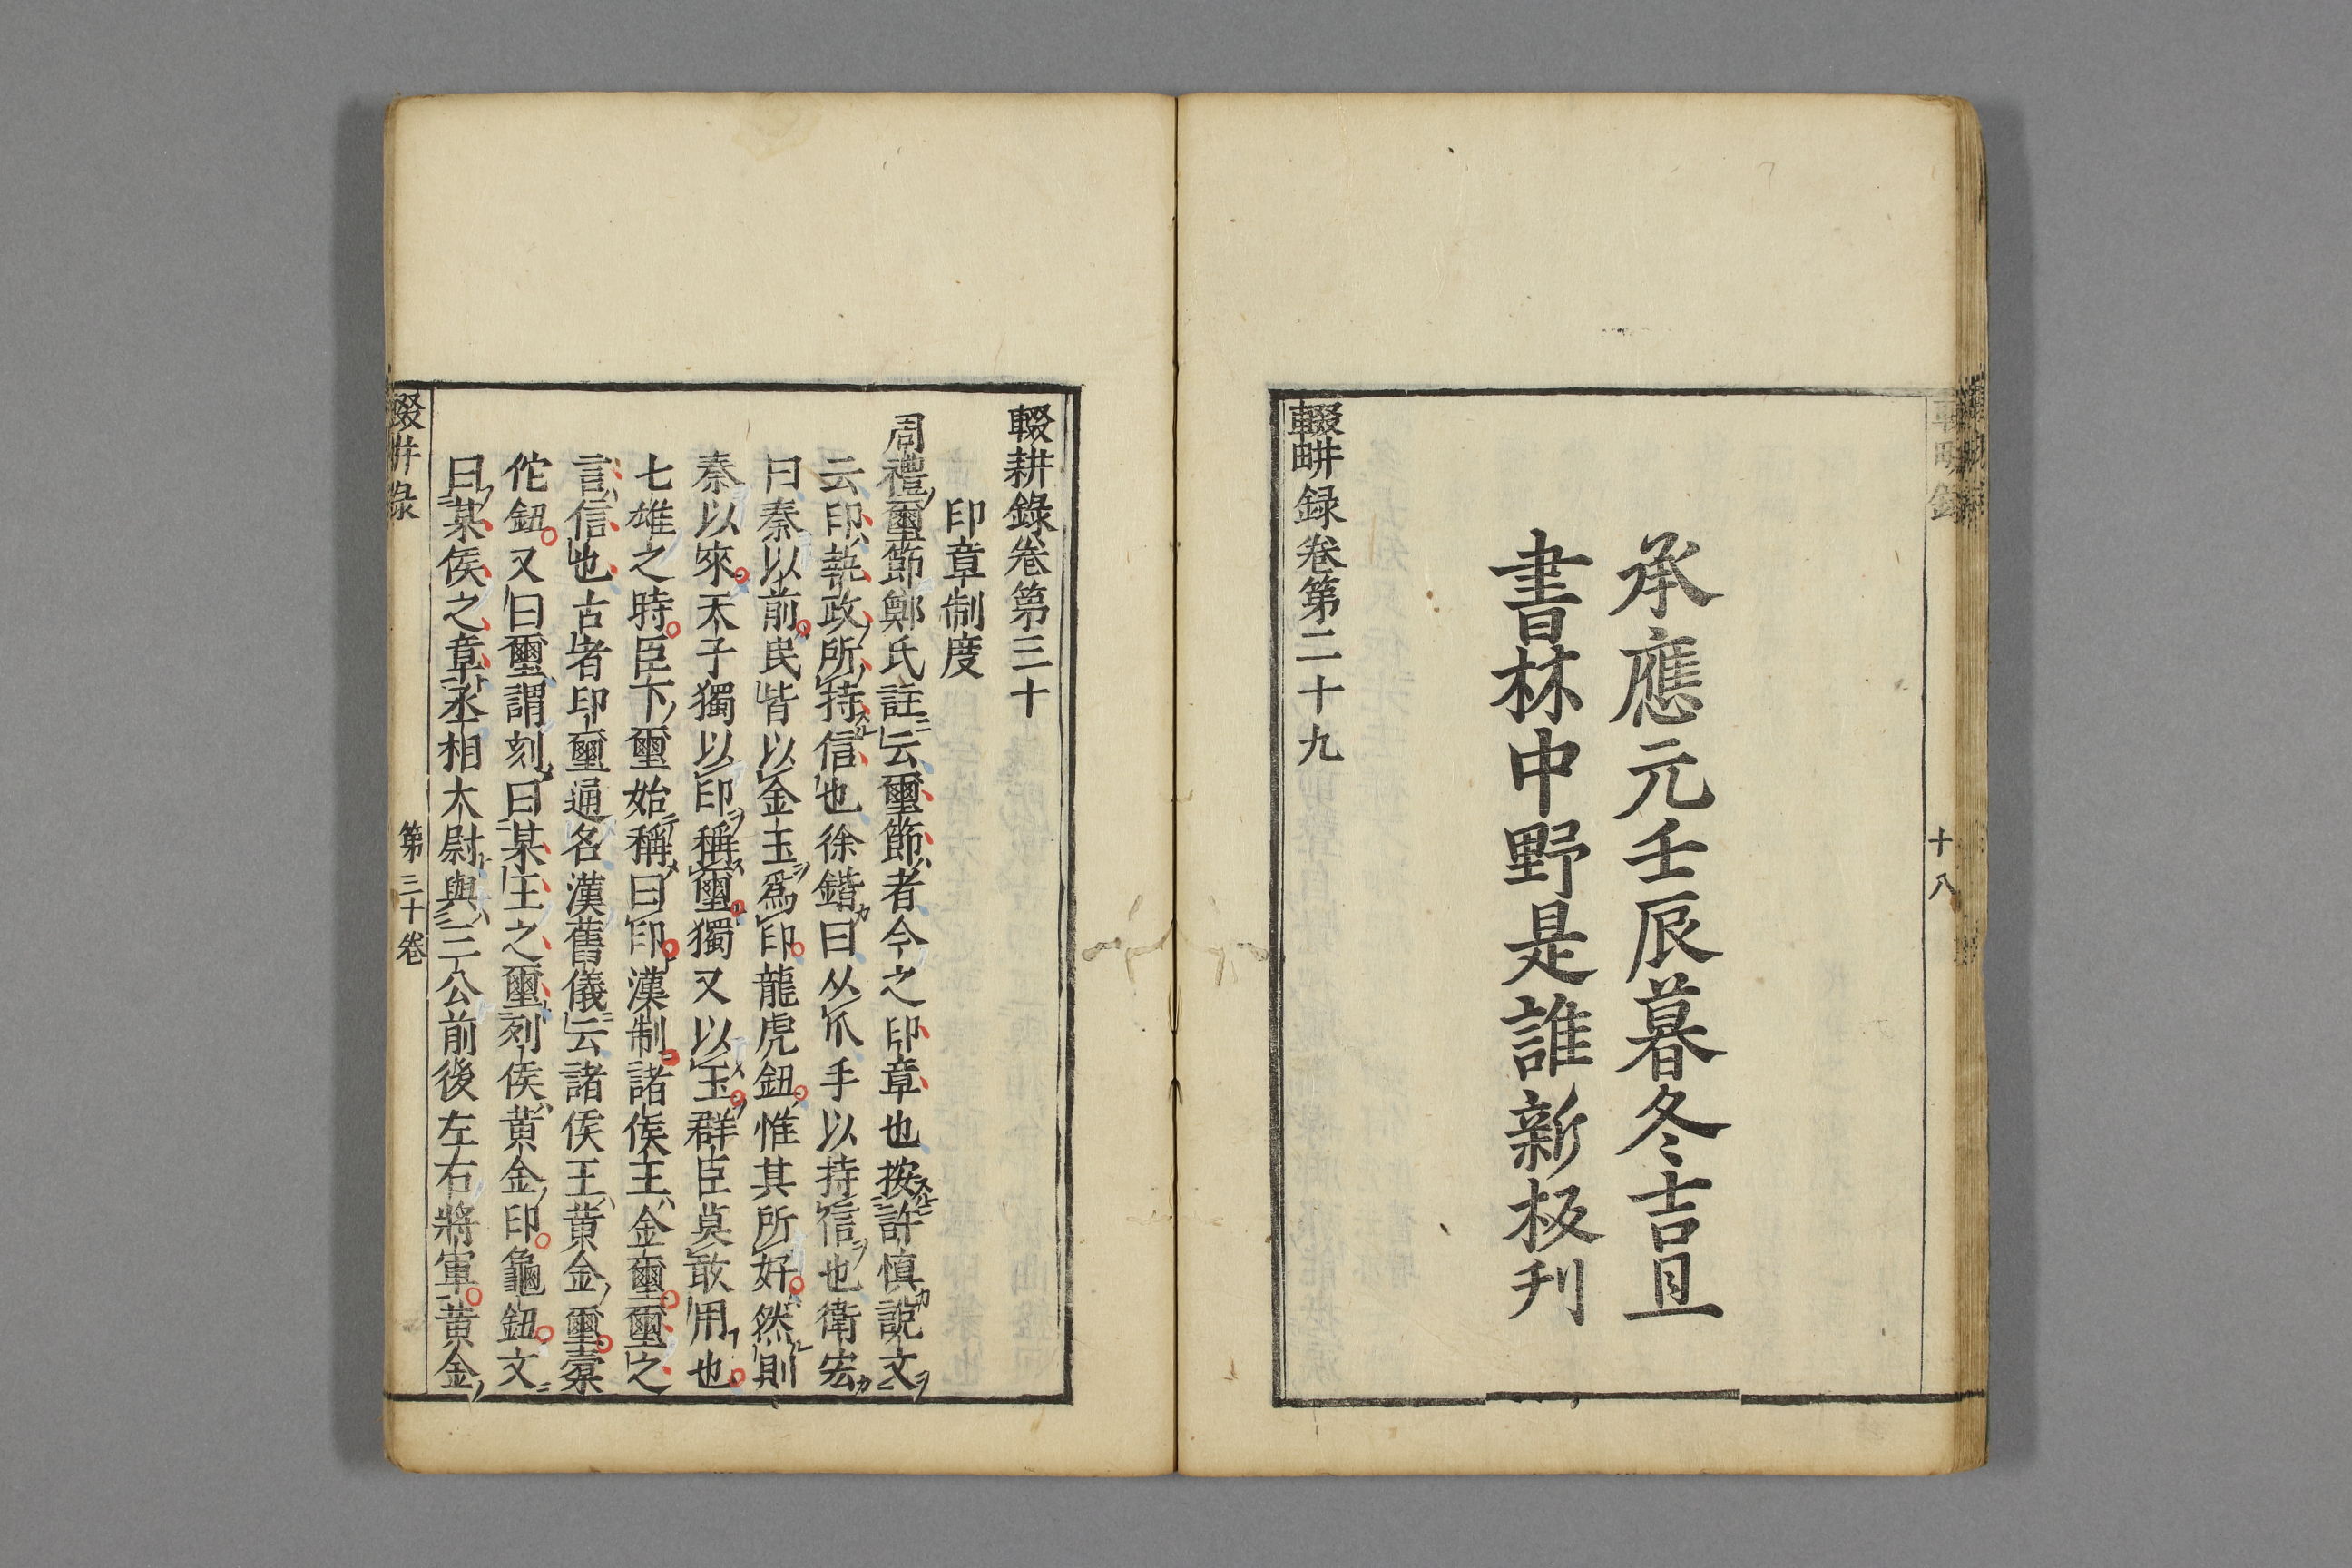 十八
承應元壬辰暮冬吉旦
書林中野是誰新板刊
輟畊録卷第二十九
輟耕錄卷第三十
印章制度
周禮璽節鄭氏註云璽節者今之印章也按許慎說文
云印執政所持信也徐鍇曰从爪手以持信也衛宏
曰秦以前民皆以金玉爲印龍虎鈕惟其所好然則
秦以來天子獨以印稱璽獨又以玉群臣莫敢用也
七雄之時臣下璽始稱曰印漢制諸侯王金璽璽之
言信也古者印璽通名漢舊儀云諸侯王黃金璽橐
佗鈕又曰璽謂刻曰某王之璽列侯黃金印龜鈕文
曰某侯之章丞相太尉與三公前後左右將軍黃金
輟畊錄
第三十卷